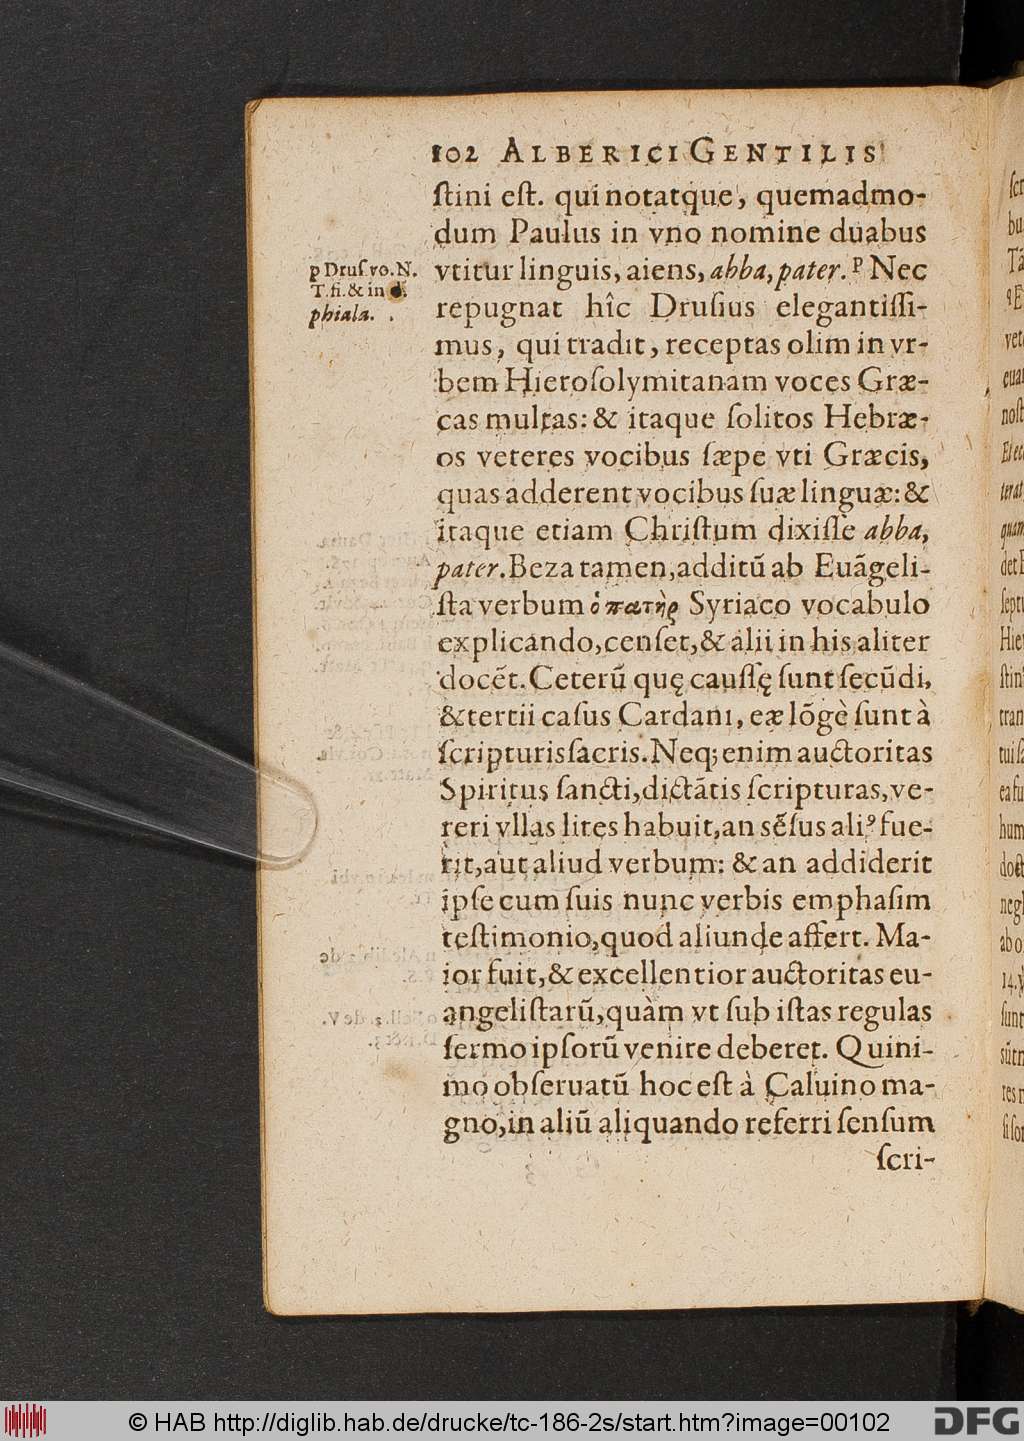 102 ALBERICI GENTILIS
ſtini eſt. qui notatque, quemadmo-
dum Paulus in vno nomine duabus
vtitur linguis, aiens, abba, pater. p Nec
p Druſ. vo. N.
T. fi. & in d.
phiala.
repugnat hîc Druſius elegantiſſi-
mus, qui tradit, receptas olim in vr-
bem Hieroſolymitanam voces Græ-
cas multas: & itaque ſolitos Hebræ-
os veteres vocibus ſæpe vti Græcis,
quas adderent vocibus ſuæ linguæ: &
itaque etiam Chriſtum dixiſſè abba,
pater. Beza tamen, additũ ab Euãgeli-
ſta verbum ὁ πατὴρ Syriaco vocabulo
explicando, cenſet, & alii in his aliter
docẽt. Ceterũ quę cauſſę ſunt ſecũdi,
& tertii caſus Cardani, eæ lõgè ſunt à
ſcripturis ſacris. Neq; enim auctoritas
Spiritus ſancti, dictãtis ſcripturas, ve-
reri vllas lites habuit, an sẽſus aliꝰ fue-
rit, aut aliud verbum: & an addiderit
ipſe cum ſuis nunc verbis emphaſim
teſtimonio, quod aliunde affert. Ma-
ior fuit, & excellentior auctoritas eu-
angeliſtarũ, quàm vt ſub iſtas regulas
ſermo ipſorũ venire deberet. Quini-
mo obſeruatũ hoc eſt à Caluino ma-
gno, in aliũ aliquando referri ſenſum
ſcri-
© HAB http://diglib.hab.de/drucke/tc-186-2s/start.htm?image=00102
DFG